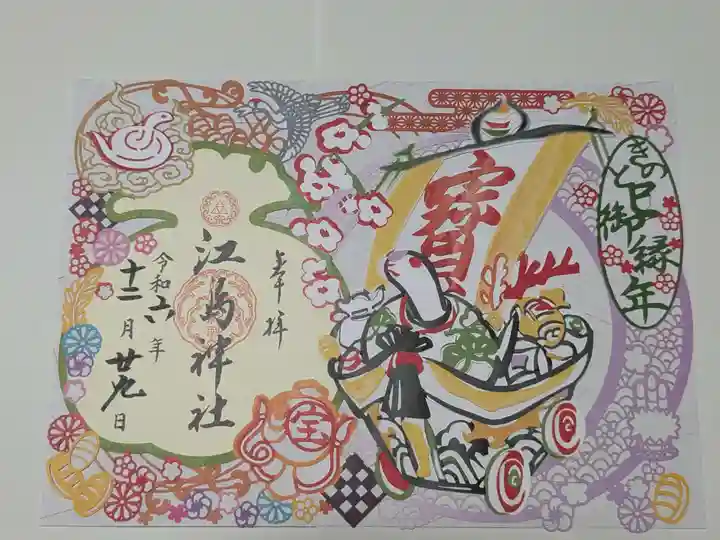 きのと巳
御縁年
寶
奉拝
江島神社
令和六年
十二月廿九日
宝